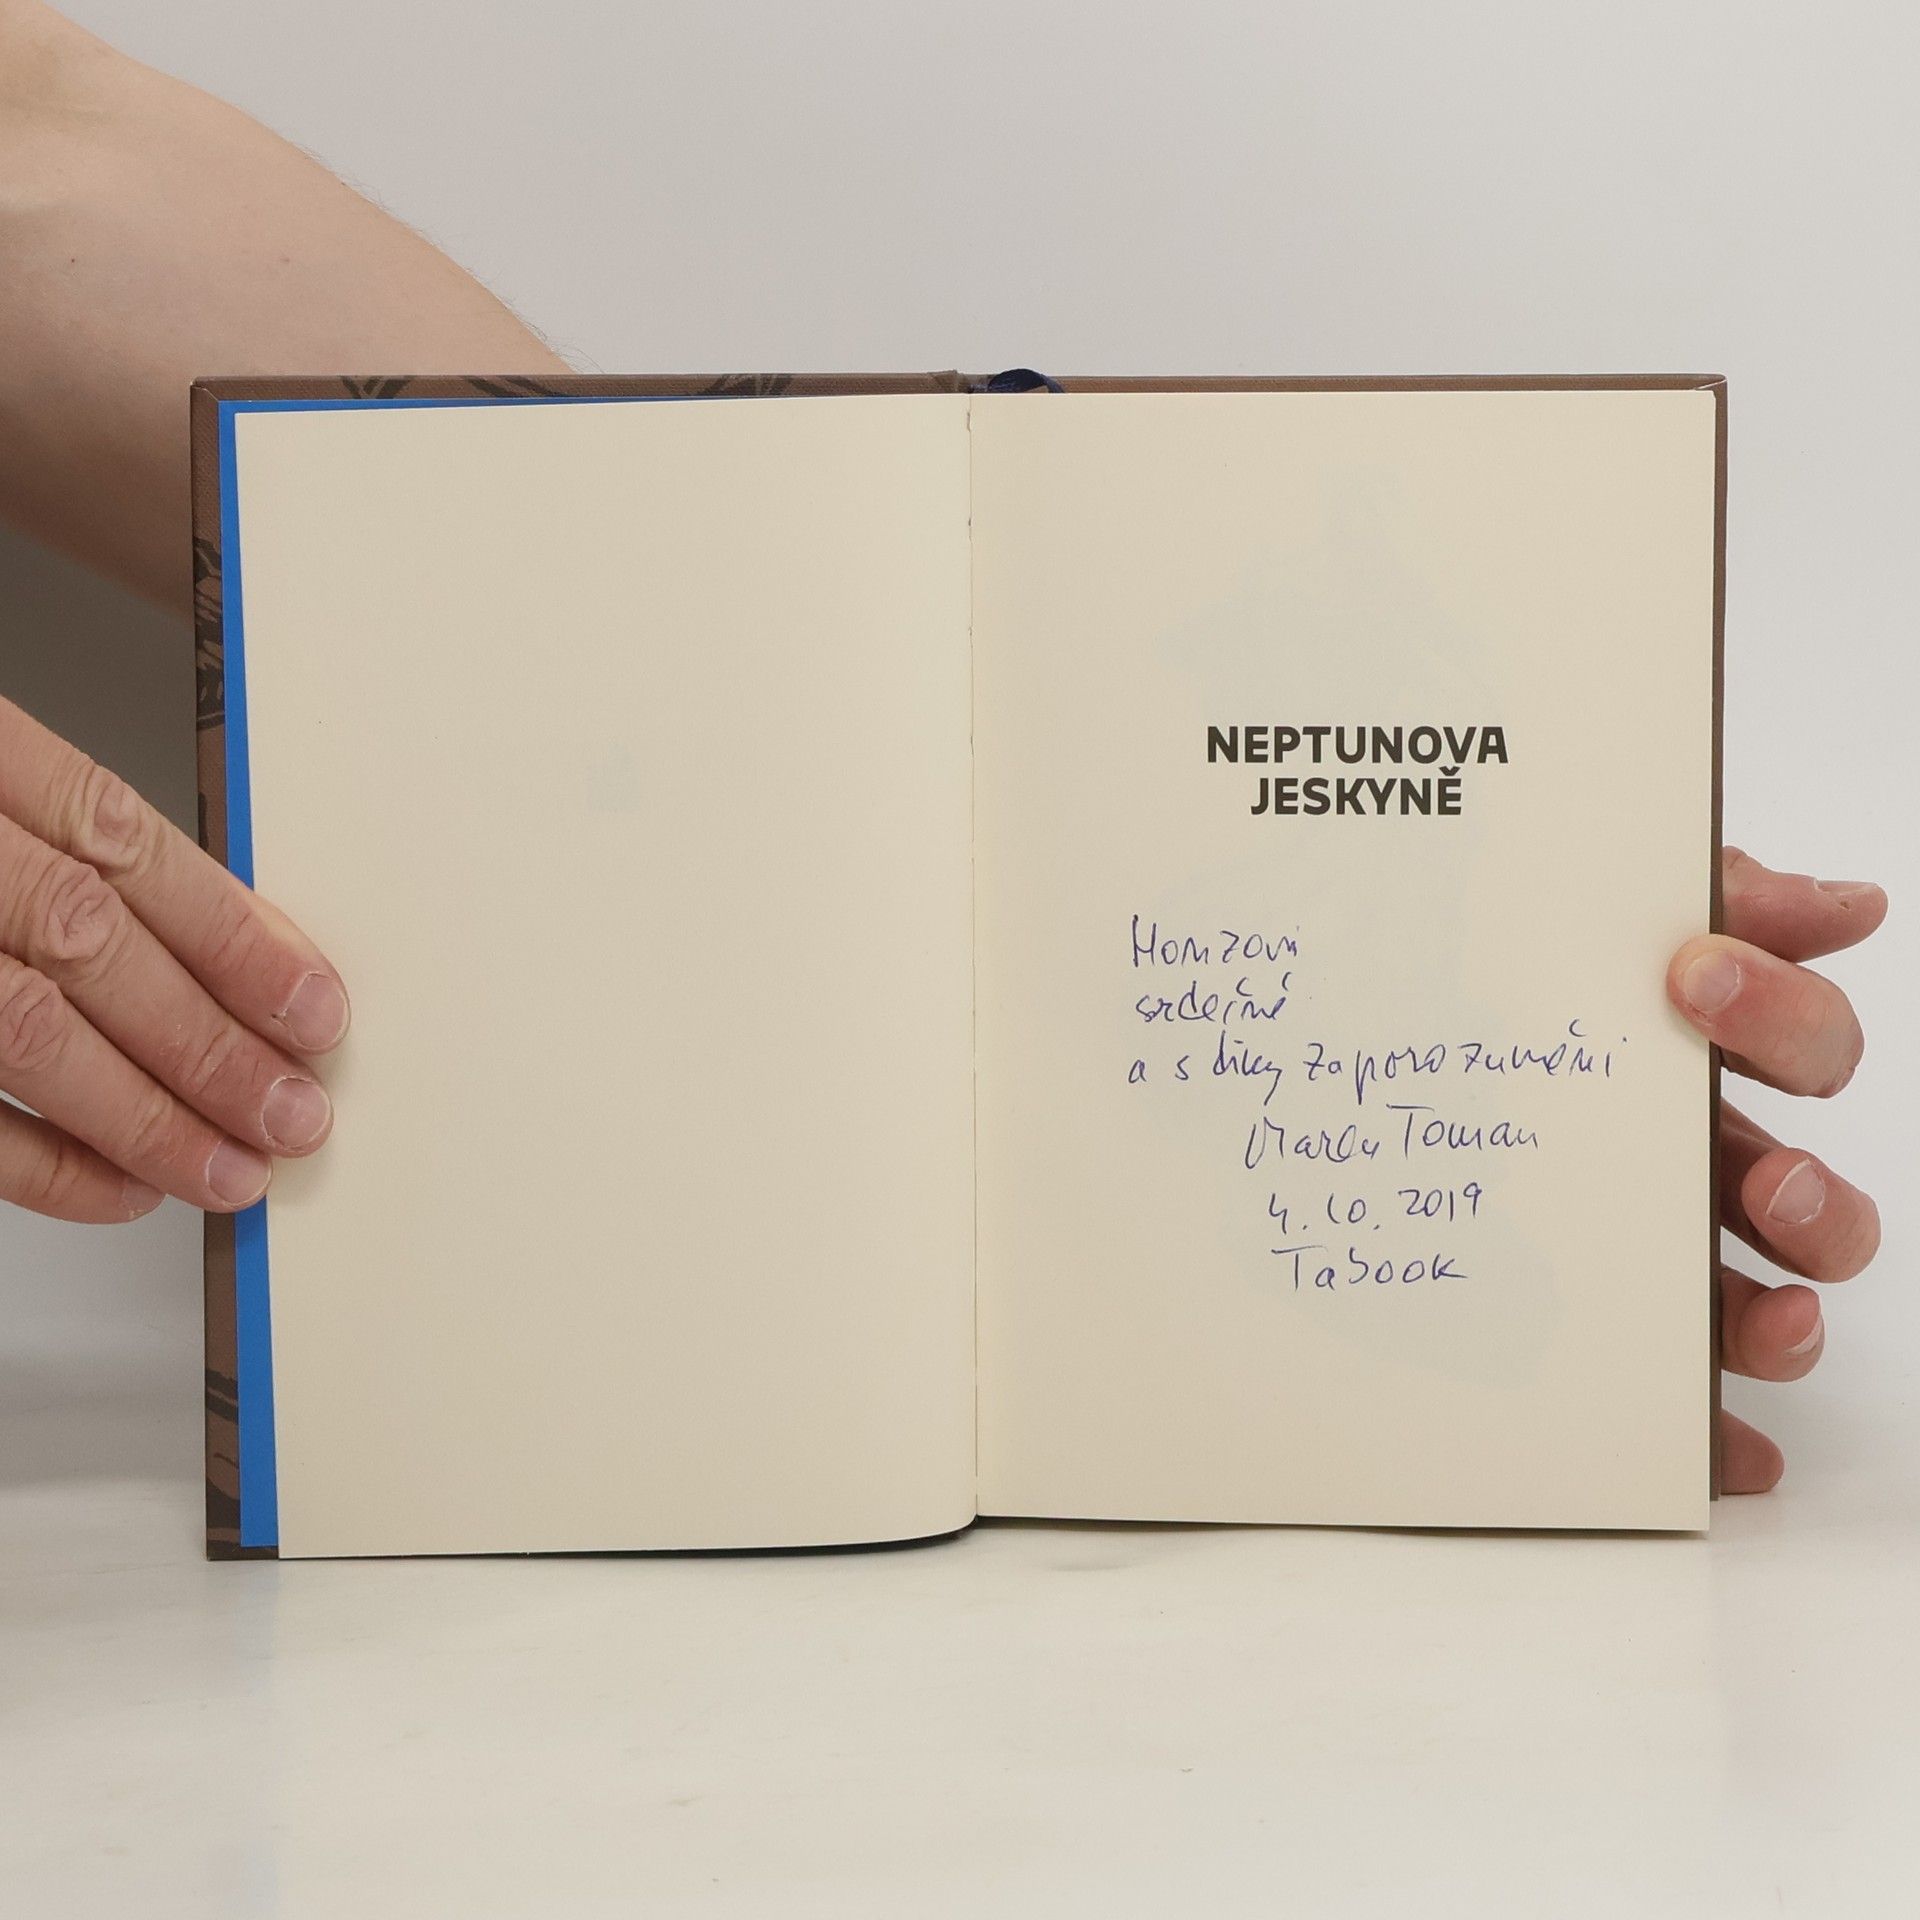 NEPTUNOVA
JESKYNĚ
Honzovi
srdečně
a s díky za porozumění
Marek Toman
4. 10. 2019
Tabook